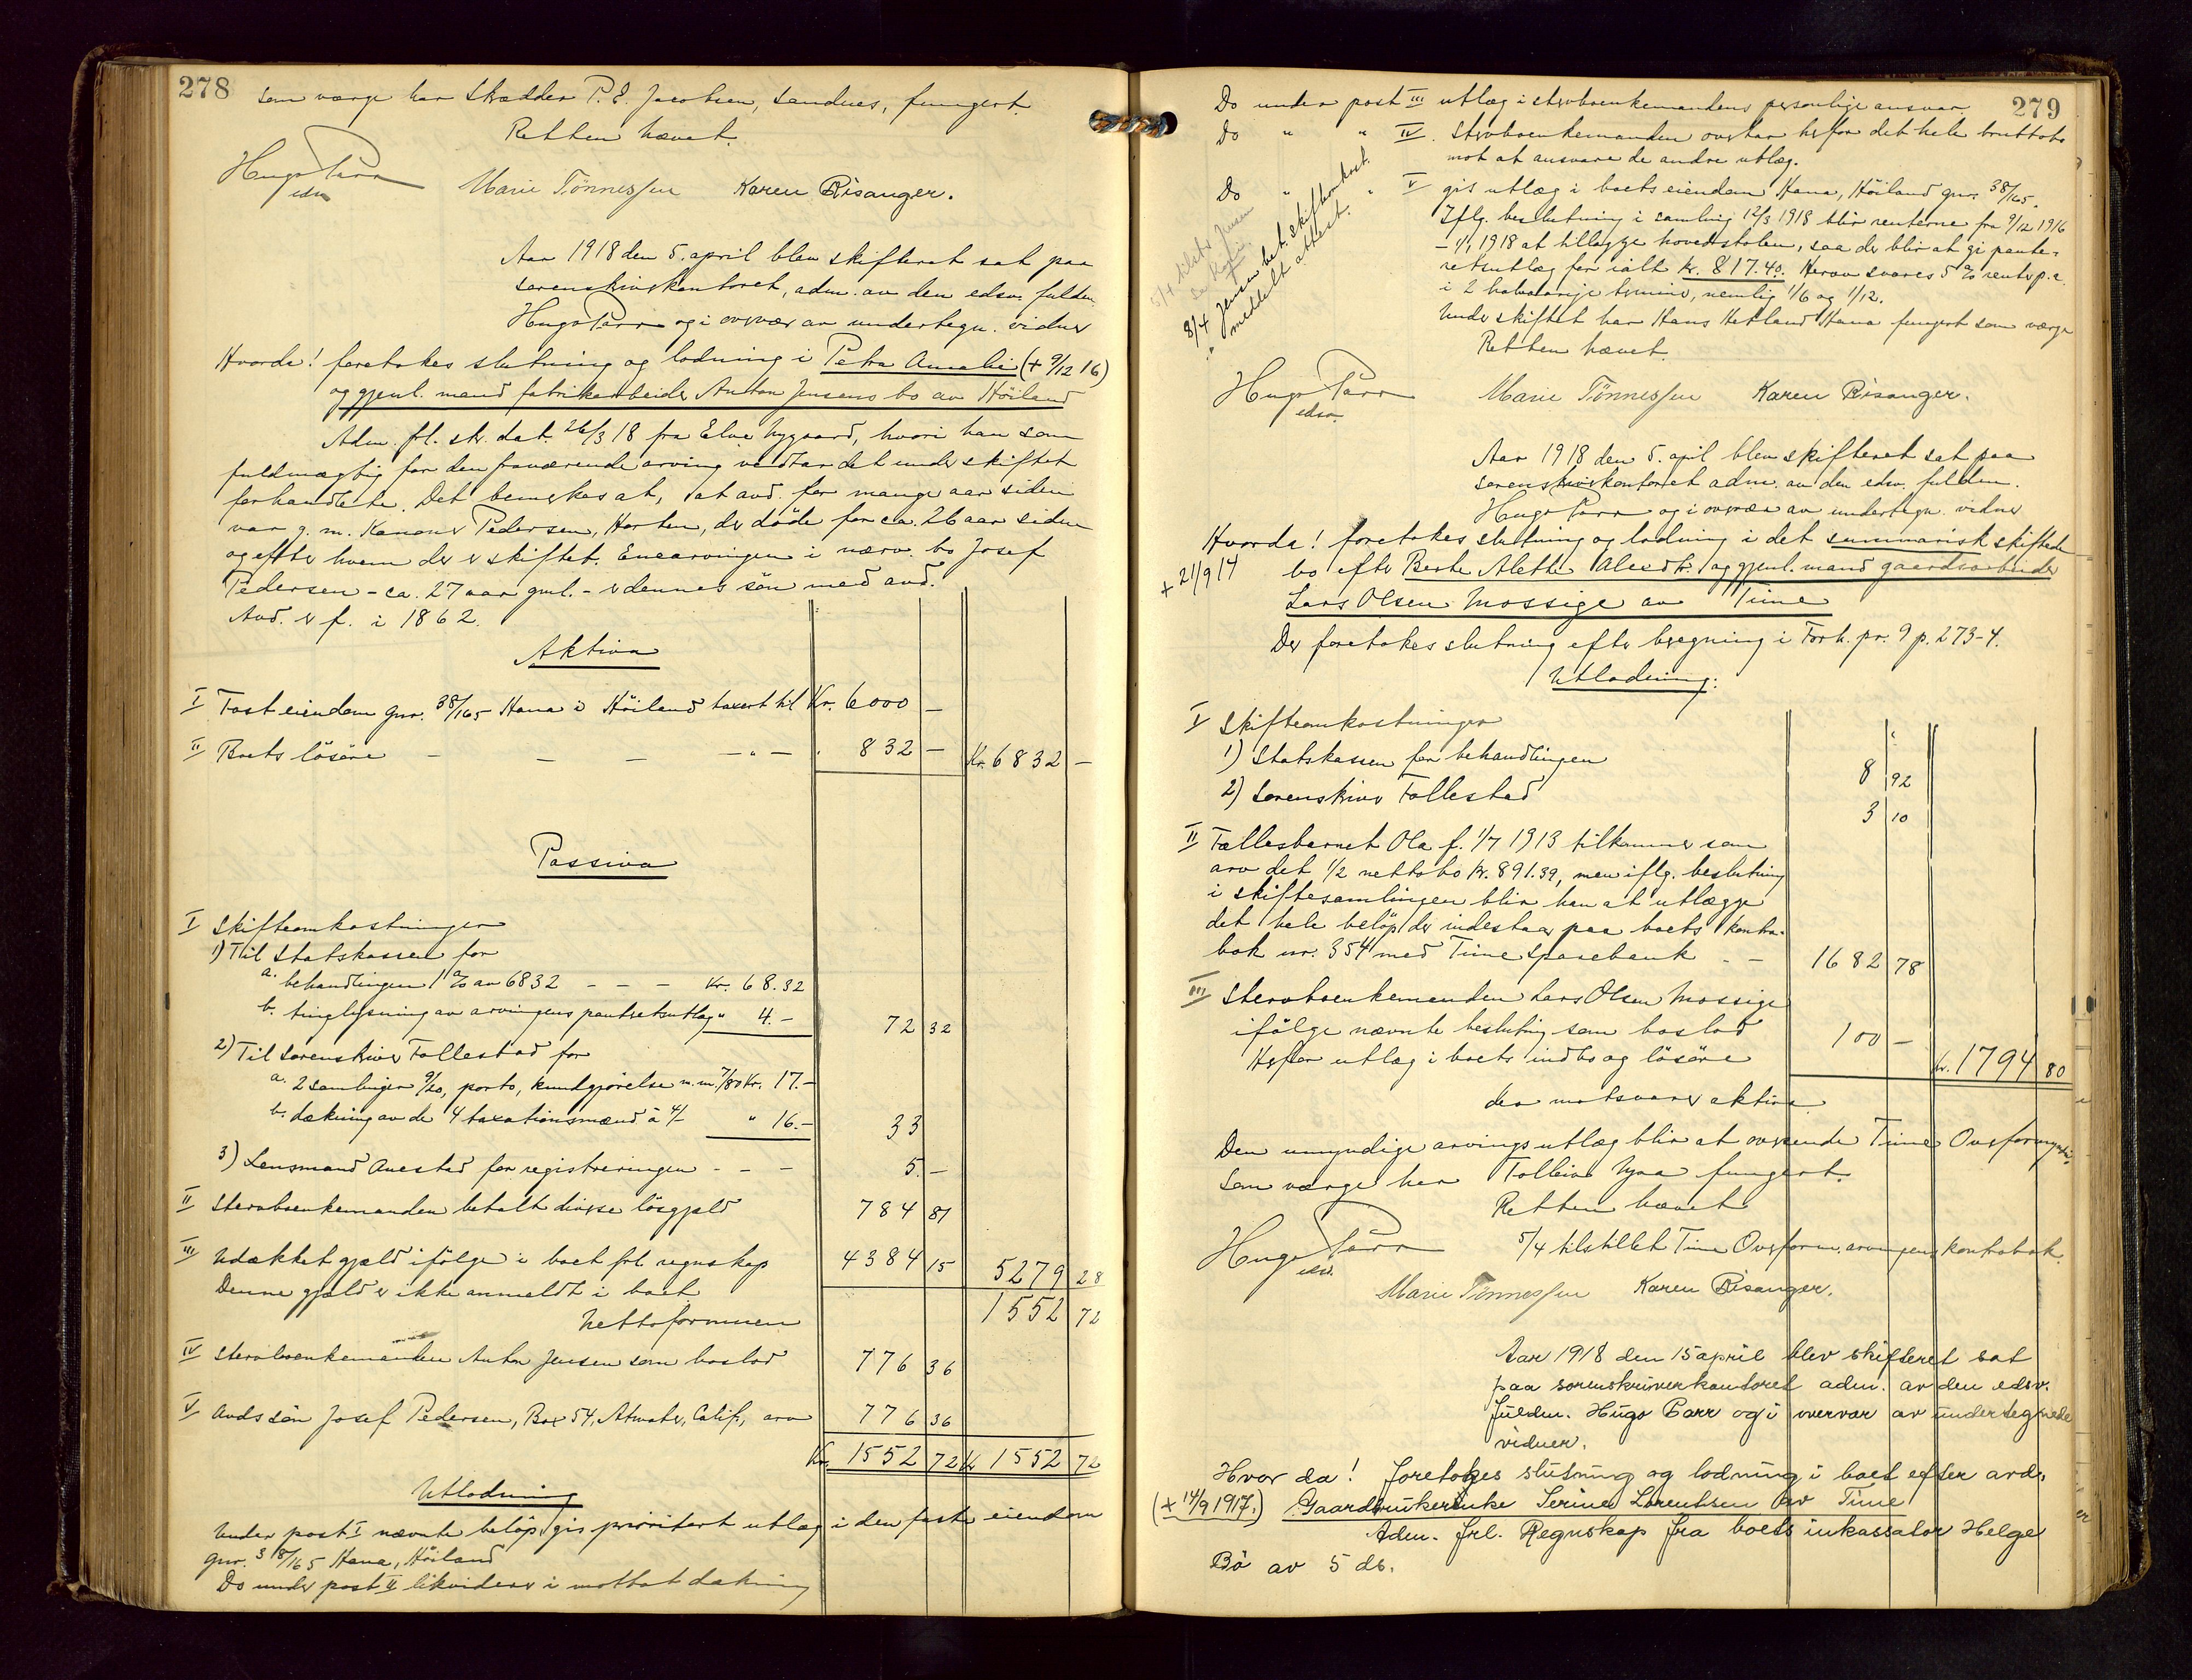 278
som værge har Skrædder P. E. Jacobsen, Sandnes, fungert.
Retten hævet.
Hugo Parr
edsv
Marie Tönnessen Karen Risanger.
Aar 1918 den 5. april blev skifteret sat paa
sorenskriverkontoret, adm. av den edsv. fuldm.
Hugo Parr og i overvær av undertegn. vidner
Hvorda! foretokes slutning og lodning i Petra Amalie (+ 9/12 16)
og gjenl. mand fabrikarbeider Anton Jensens bo av Höiland
Adm. frl. skr. dat. 26/3 18 fra Elve Nygaard, hvori han som
fuldmægtig for den fraværende arving vedtar det under skiftet
forhandlete. Det bemerkes at, at avd. for mange aar siden
var g. m. Kanoner Pedersen, Horten, der döde for ca. 26 aar siden
og efter hvem der er skiftet. Enearvingen i nærv. bo Josef
Pedersen - ca. 27 aar gml. - er dennes sön med avd.
Avd. er f. i 1862.
Aktiva
I Fast eiendom gnr. 38/165 Hana i Höiland taxert til Kr. 6000 -
II Boets lösöre - - - - " - " 832 - Kr. 6832 -
Passiva
I Skifteomkostninger
1) Til Statskassen for
a. behandlingen 1 % av 6832 - - - Kr. 68.32
b. tinglysning av arvingens panteretsutlæg " 4.- 72 32
2) Til Sorenskriver Follestad for
a. 2 samlinger 9/20, porto, kundgjörelse m.m. 7/80 Kr. 17.-
b. dækning av de 4 taxationsmænd à 4/- " 16.- 33
3) Lensmand Avestad for registreringen - - - 5.-
II Stervboenkemanden betalt diverse lösgjæld 784 81
III Udækket gjæld ifölge i boet frl. regnskap 4384 15 5279 28
Denne gjæld er ikke anmeldt i boet
Nettoformuen 1552 72
IV Stervboenkemanden Anton Jensen som boslod 776 36
V Avds sön Josef Pedersen, Box 54, Atwater, Calif., arv 776 36
Kr. 1552 72 Kr 1552 72
Utlodning
Under post I nævnte belöp gis prioritert utlæg i den faste eiendom
gnr. 38/165 Hana, Höiland
Do under post II likviderer i mottat dækning
279
Do under post III utlæg i stervboenkemandens personlige ansvar
Do " " IV. Stervboenkemanden overtar herfor det hele bruttobo
mot at ansvare de andre utlæg.
Do " " V gis utlæg i boets eiendom Hana, Höiland gnr. 38/165.
Iflg. beslutning i samling 12/3 1918 blir renterne fra 9/12 1916
- 1/4 1918 at tillægge hovedstolen, saa der blir at gi pante-
retsutlæg for ialt kr. 817.40. Herav svares 5 % renter p.a.
i 2 halvaarige terminer, nemlig 1/6 og 1/12.
Under skiftet har Hans Hetland Hana fungert som værge
Retten hævet.
8/4 Jensen bet. skifteomkost.
" meddelt attest.
Hugo Parr
edsv.
Marie Tönnessen Karen Risanger.
Aar 1918 den 5. april blev skifteret sat paa
sorenskriverkontoret adm. av den edsv. fuldm.
Hugo Parr og i overvær av undertegn. vidner
Hvorda! foretokes slutning og lodning i det summarisk skiftede
+ 21/9 17 bo efter Berte Alette Alexdtr. og gjenl. mand gaardsarbeider
Lars Olsen Mossige av Time
Der foretokes slutning efter beregning i Forh. pr. 9 p. 273-4.
Utlodning:
I Skifteomkostninger
1) Statskassen for behandlingen 8 92
2) Sorenskriver Follestad 3 10
II Fællesbarnet Ola f. 1/7 1913 tilkommer som
arv det 1/2 nettobo kr. 891.39, men iflg. beslutning
i skiftesamlingen blir han at utlægge
det hele belöp der indestaar paa boets kontra-
bok nr. 354 med Time Sparebank - - 1682 78
III Stervboenkemanden Lars Olsen Mossige
ifölge nævnte beslutning som boslod 100 -
Herfor utlæg i boets indbo og lösöre Kr. 1794 80
der motsvarer aktiva.
Den umyndige arvings utlæg blir at oversende Time Overformynderi.
Som værge har Tolleiv Njaa fungert.
Retten hævet
Hugo Parr
edsv.
5/4 tilstillet Time Overform. arvingens kontrabok.
Marie Tönnessen Karen Risanger.
Aar 1918 den 15 april blev skifteret sat
paa sorenskriverkontoret adm. av den edsv.
fuldm. Hugo Parr og i overvær av undertegnede
vidner.
Hvor da! foretokes slutning og lodning i boet efter avd.
(+ 14/9 1917.) Gaardbrukerenke Serine Lorentsen av Time
Adm. frl. Regnskap fra boets inkassator Helge
Bö av 5 ds.